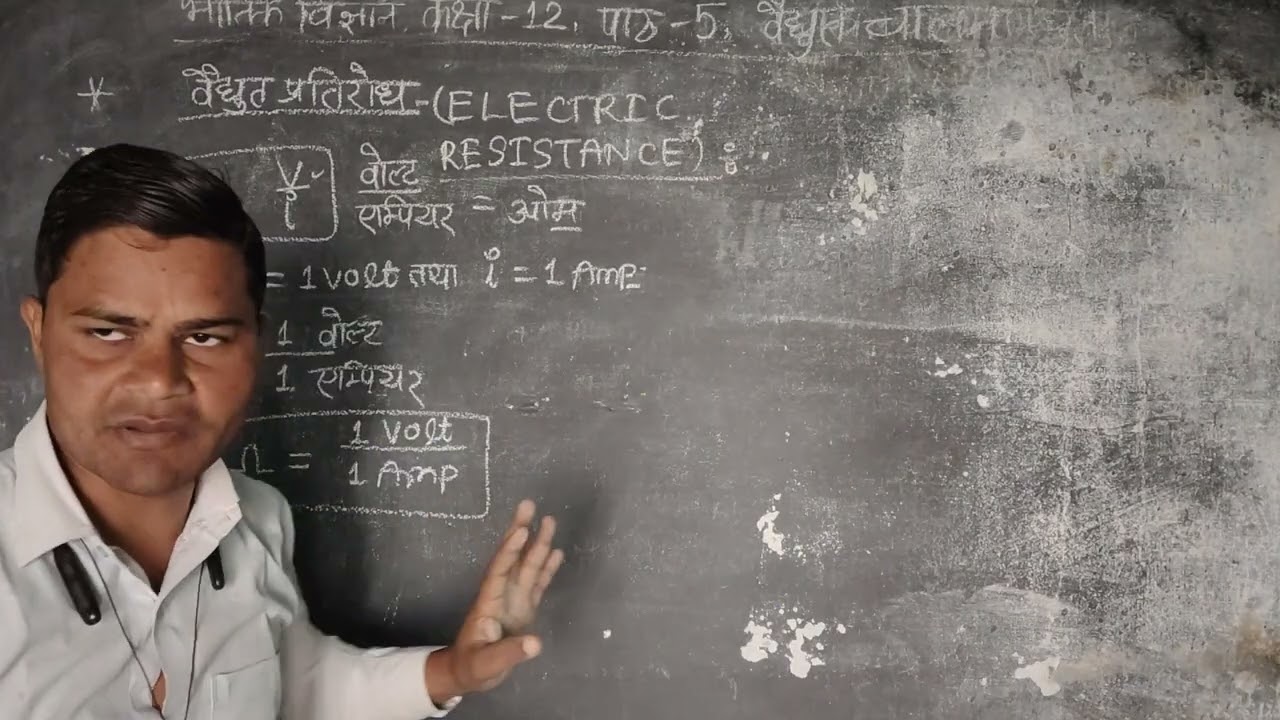 भौतिक विज्ञान, कक्षा -12, पाठ -5, वैद्युत चालन
* वैद्युत प्रतिरोध - (ELECTRIC
RESISTANCE) :
V/i वोल्ट/एम्पियर = ओम
= 1 Volt तथा i = 1 Amp.
1 वोल्ट
1 एम्पियर
Ω = 1 Volt/1 Amp